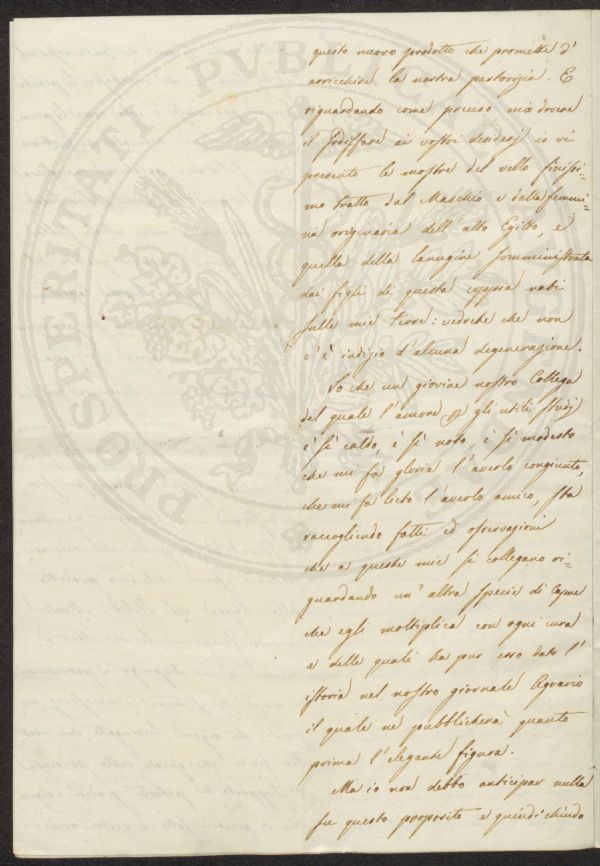 questo nuovo prodotto che promette d'
arricchire la nostra pastorizia. E
riguardando come preciso mio dovere
il sodisfare ai vostri desiderj io vi
presento le mostre del vello finissi=
mo tratto dal Maschio e della femmi=
na originaria dell'alto Egitto, e
quella della lanugine somministrata
dai figli di questa coppia nati
sulle mie terre: vedrete che non
v'è indizio d'alcuna degenerazione.
So che un giovine nostro Collega
del quale l'amore p gli utili studj
è sì caldo, è sì noto, è sì modesto
che mi fa gloria l'averlo congiunto,
che mi fa lieto l'averlo amico, sta
raccogliendo fatti ed osservazioni
che a queste mie si collegano ri=
guardando un'altra specie di Capre
che egli moltiplica con ogni cura
e delle quali ha pur esso dato l'
istoria nel nostro giornale Agrario
il quale ne pubblicherà quanto
prima l'elegante figura.
Ma io non debbo anticipar nulla
su questo proposito e quindi chiudo
PROSPERITATI PVBLICAE